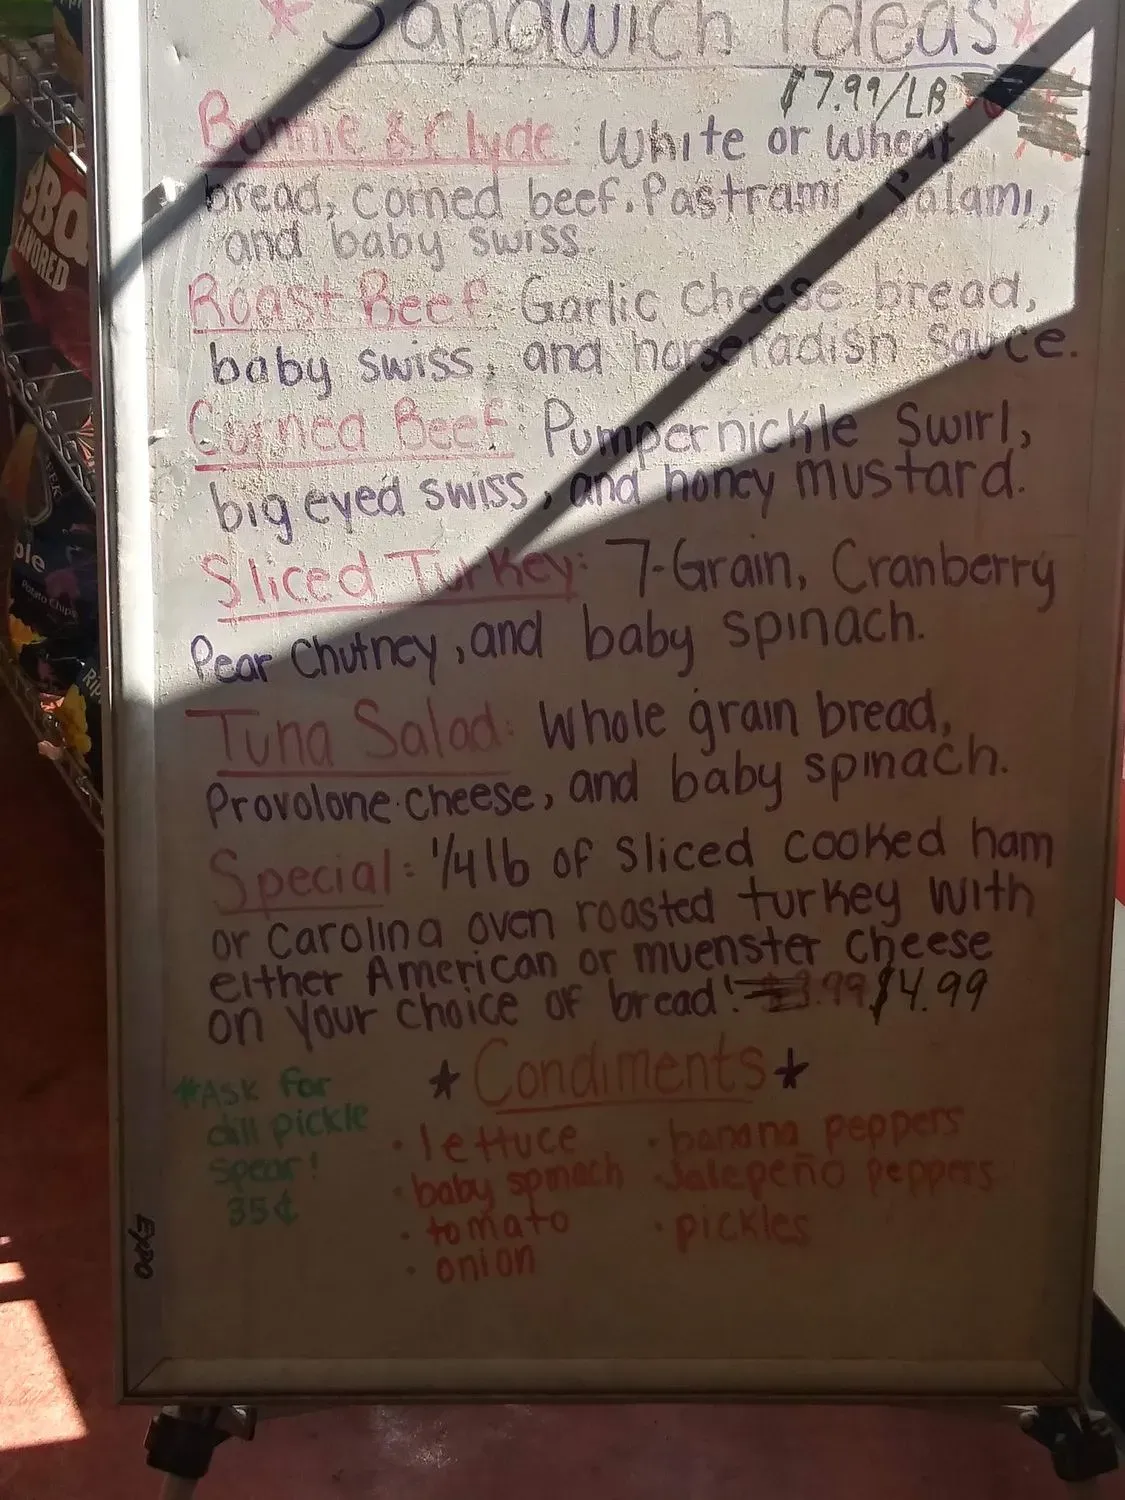 Sandwich Ideas
$7.99/LB
Bonnie & Clyde: White or Wheat
bread, corned beef. Pastrami, Salami,
and baby swiss.
Roast Beef: Garlic cheese bread,
baby swiss, and horseradish sauce.
Corned Beef: Pumpernickle Swirl,
big eyed swiss, and honey mustard.
Sliced Turkey: 7-Grain, Cranberry
Pear Chutney, and baby spinach.
Tuna Salad: Whole grain bread,
Provolone cheese, and baby spinach.
Special: 1/4 lb of sliced cooked ham
or Carolina oven roasted turkey with
either American or muenster cheese
on your choice of bread! $3.99 $4.99
*Condiments*
*Ask for
dill pickle
spear!
35¢
• lettuce
• baby spinach
• tomato
• onion
• banana peppers
• Jalepeño peppers
• pickles
Expo
BBQ
FLAVORED
Potato Chips